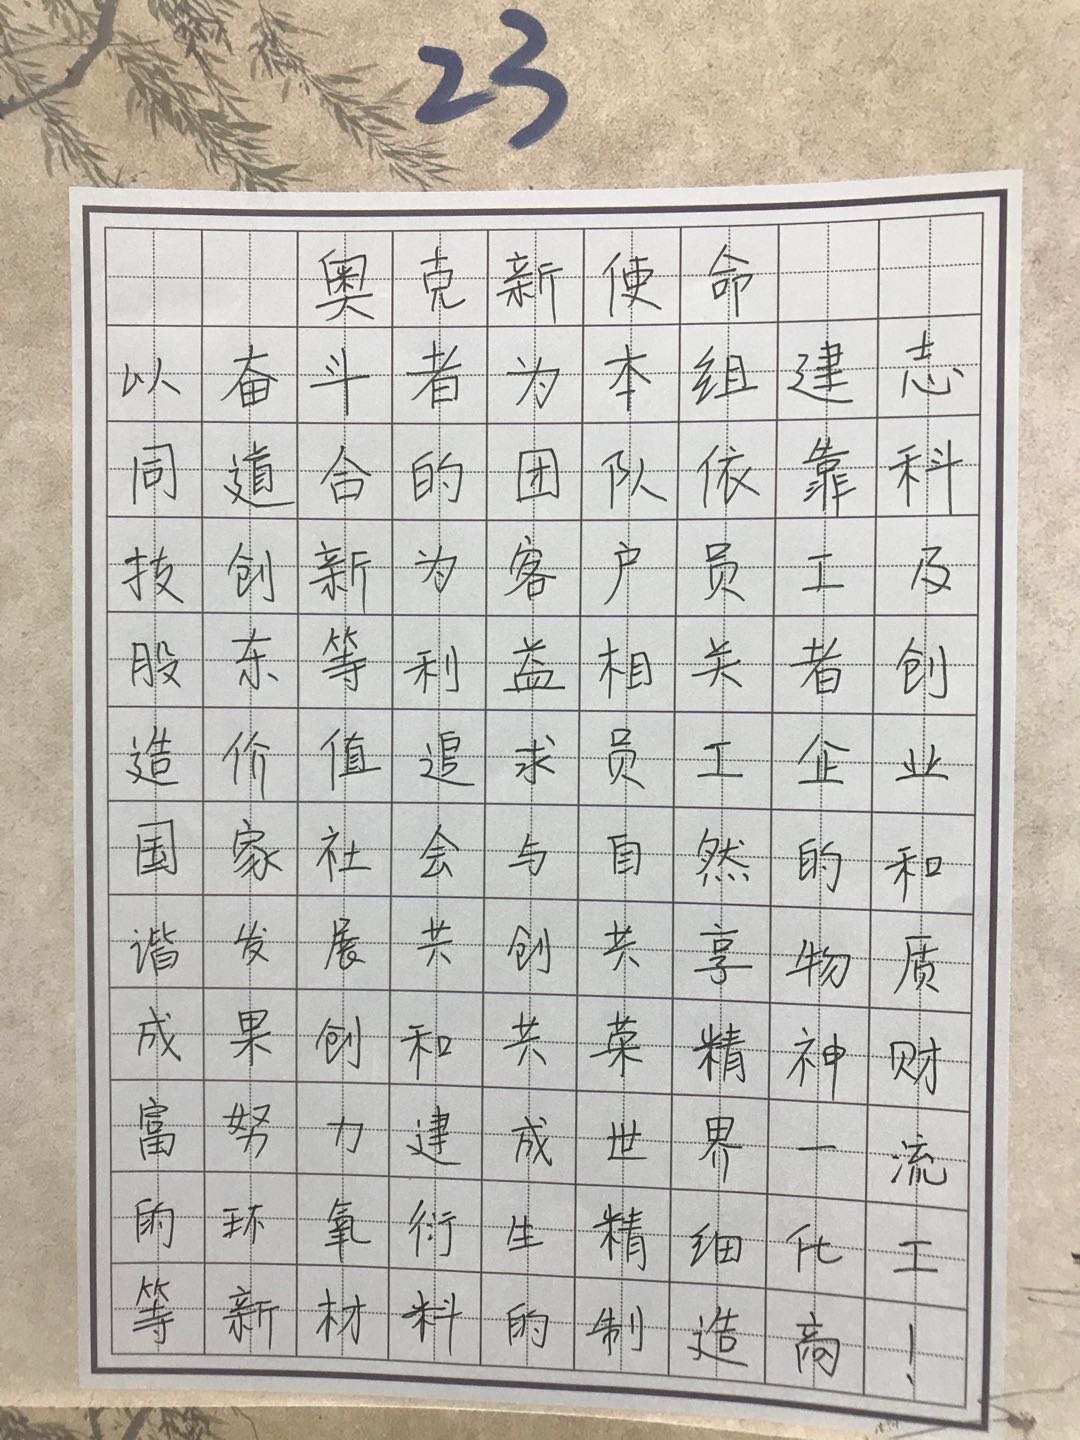 23
奥克新使命
以奋斗者为本组建志
同道合的团队依靠科
技创新为客户员工及
股东等利益相关者创
造价值追求员工企业
国家社会与自然的和
谐发展共创共享物质
成果创和共荣精神财
富努力建成世界一流
的环氧衍生精细化工
等新材料的制造商！